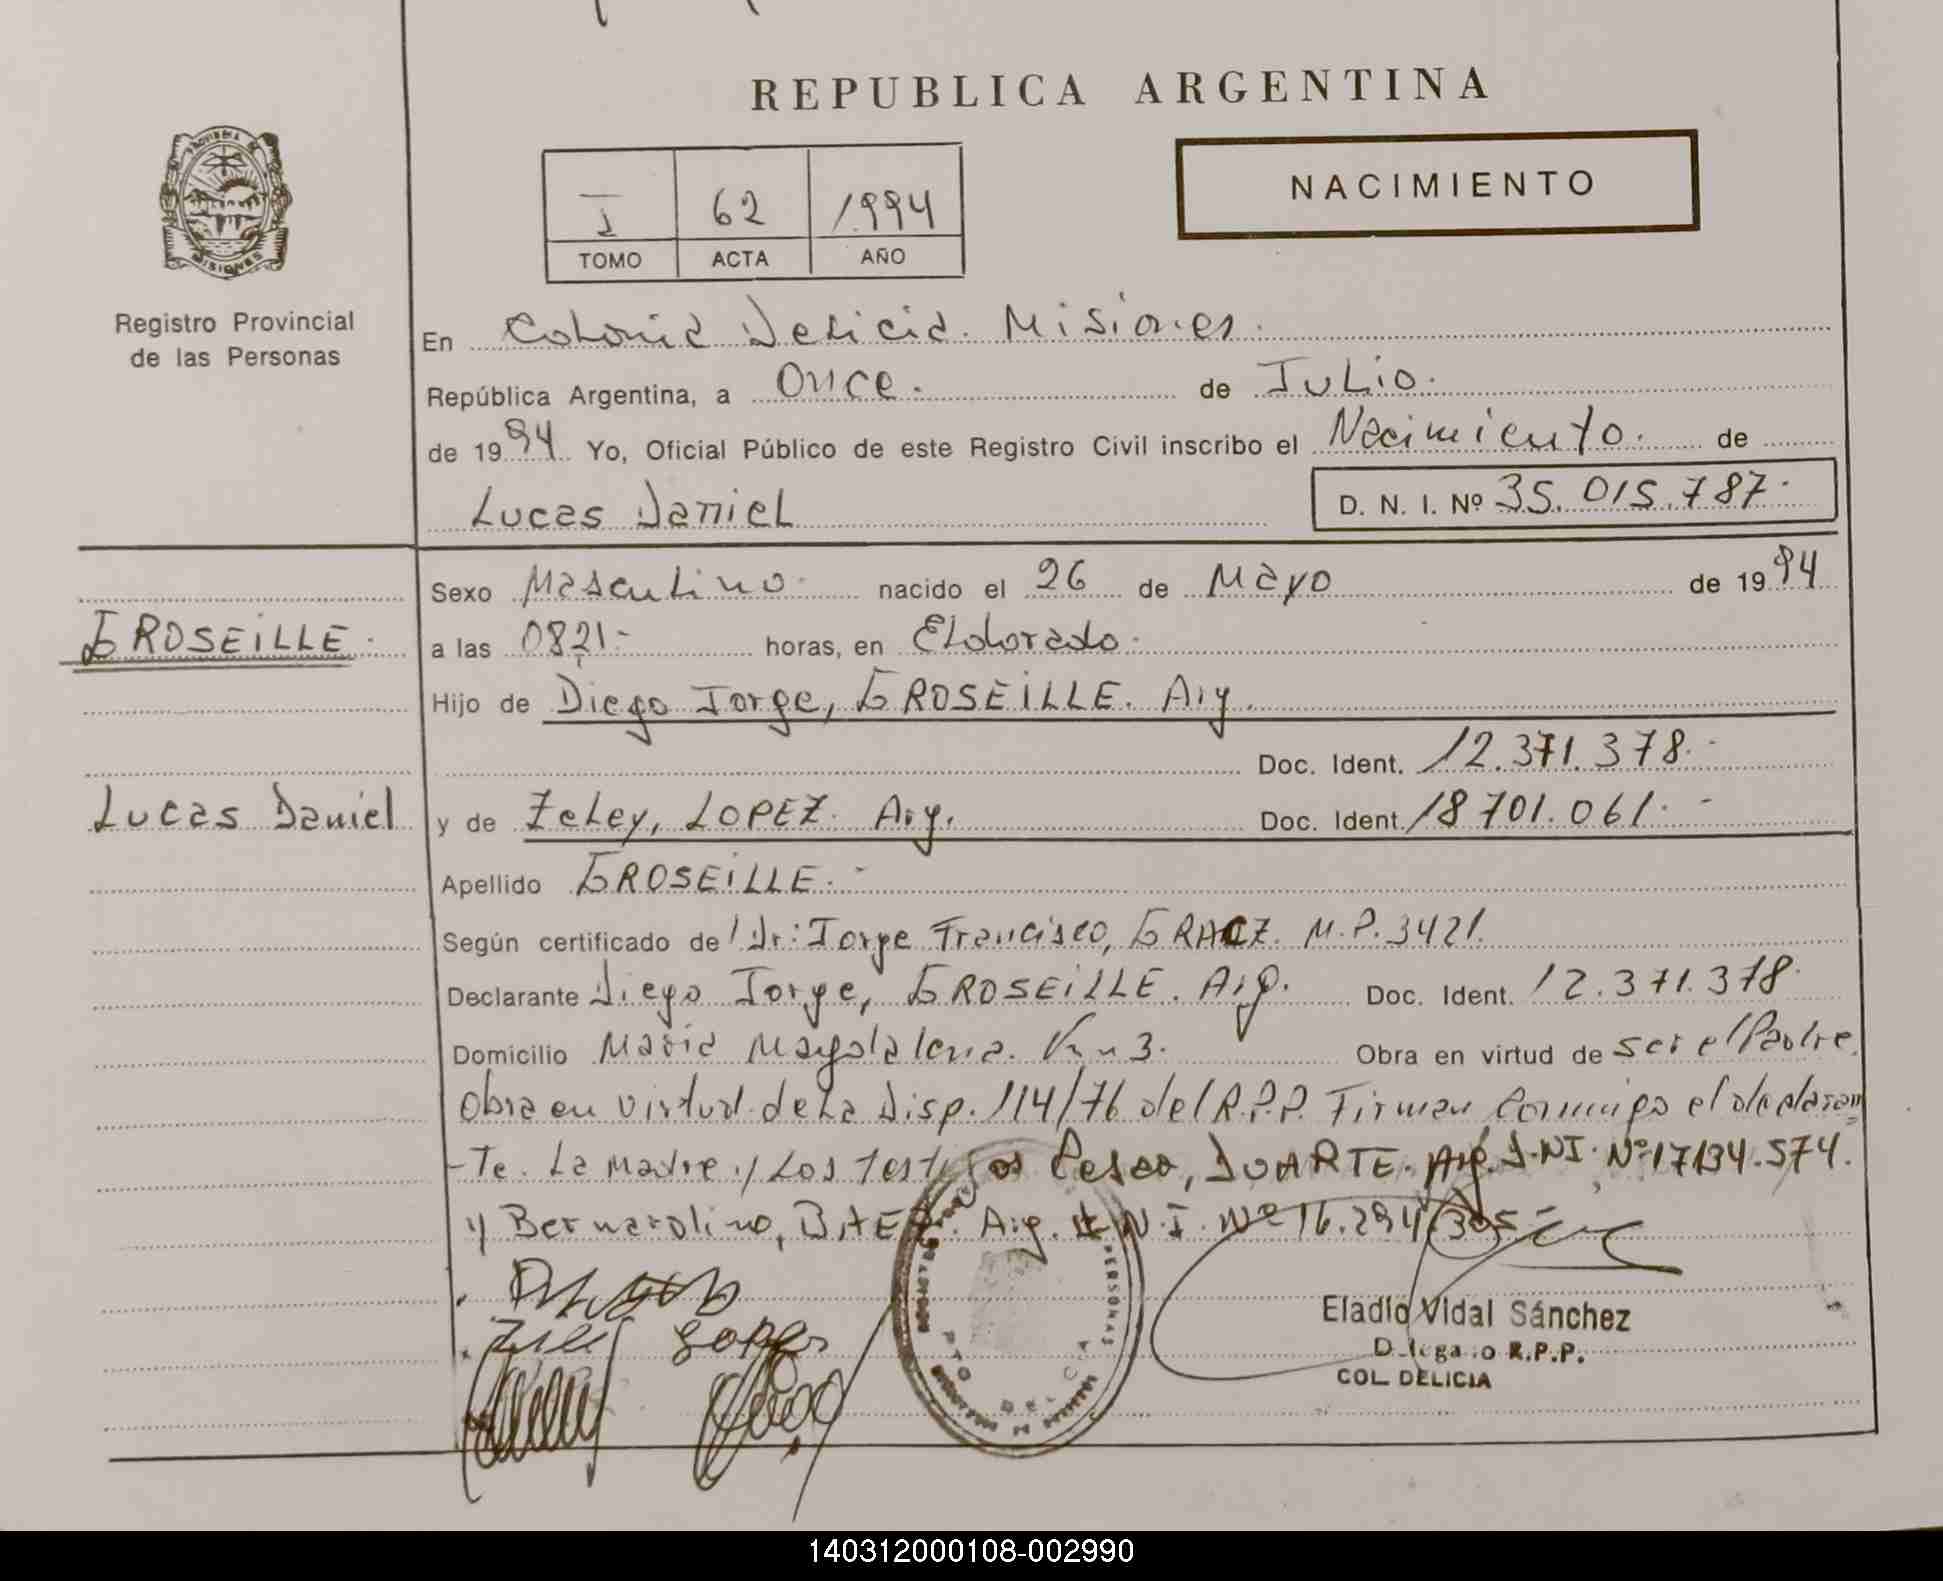 REPUBLICA ARGENTINA
PROVINCIA DE
MISIONES
Registro Provincial
de las Personas
I 62 1994
TOMO ACTA AÑO
NACIMIENTO
En Colonia Delicia. Misiones.
República Argentina, a Once. de Julio.
de 1994 Yo, Oficial Público de este Registro Civil inscribo el Nacimiento. de
Lucas Daniel D. N. I. Nº 35.015.787.
Sexo Masculino. nacido el 26 de Mayo de 1994
GROSEILLE. a las 0821- horas, en Eldorado.
Hijo de Diego Jorge, GROSEILLE. Arg.
Doc. Ident. 12.371.378.-
Lucas Daniel y de Zeley, LOPEZ. Arg. Doc. Ident. 18701.061.-
Apellido GROSEILLE.-
Según certificado de Dr: Jorge Francisco, M.P. 3421.
Declarante Diego Jorge, GROSEILLE. Arg. Doc. Ident. 12.371.378.
Domicilio Maria Magdalena. Km 3. Obra en virtud de ser el Padre.
Obra en virtud de La Disp. 114/76 del R.P.P. Firman Conmigo el declaran
-Te. La Madre y Los testigos DUARTE. Arg. D.NI. Nº 17134.574.
y Bernardino, Arg. D.N.I. Nº 16.294.305
Eladio Vidal Sánchez
Delegado R.P.P.
COL. DELICIA
PERSONAS
140312000108-002990